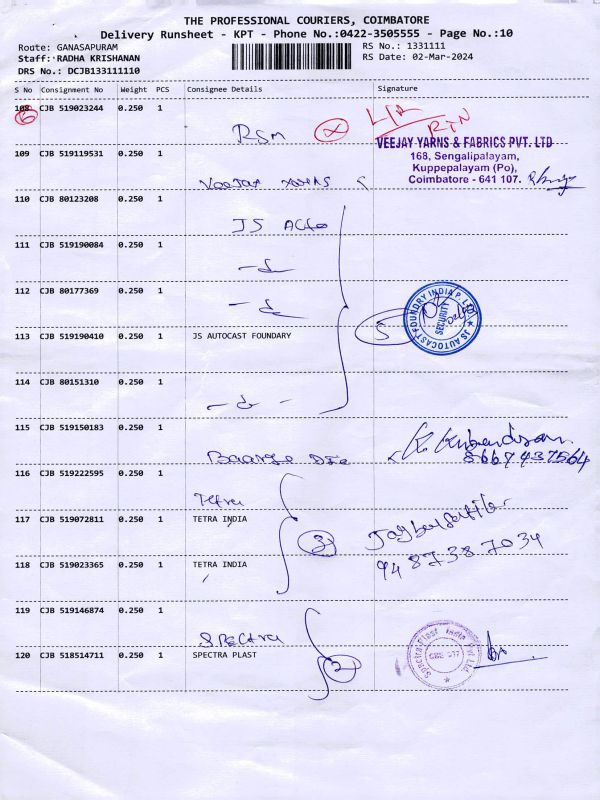 THE PROFESSIONAL COURIERS, COIMBATORE
Delivery Runsheet - KPT - Phone No.:0422-3505555 - Page No.:10
Route: GANASAPURAM
RS No.: 1331111
Staff: RADHA KRISHANAN
RS Date: 02-Mar-2024
DRS No.: DCJB133111110
S No Consignment No Weight PCS Consignee Details Signature
108 CJB 519023244 0.250 1
RSM
RTN
109 CJB 519119531 0.250 1
VEEJAY YARNS & FABRICS PVT. LTD
168, Sengalipalayam,
Kuppepalayam (Po),
Coimbatore - 641 107.
Veejay Yarns
110 CJB 80123208 0.250 1
JS Auto
111 CJB 519190084 0.250 1
112 CJB 80177369 0.250 1
JS AUTOCAST FOUNDRY INDIA P. LTD
SECURITY
113 CJB 519190410 0.250 1 JS AUTOCAST FOUNDARY
5
114 CJB 80151310 0.250 1
115 CJB 519150183 0.250 1
8667437564
116 CJB 519222595 0.250 1
Tetra
117 CJB 519072811 0.250 1 TETRA INDIA
3
118 CJB 519023365 0.250 1 TETRA INDIA
94 87387034
119 CJB 519146874 0.250 1
Spectra
120 CJB 518514711 0.250 1 SPECTRA PLAST
2
Spectra Plast India Pvt Ltd